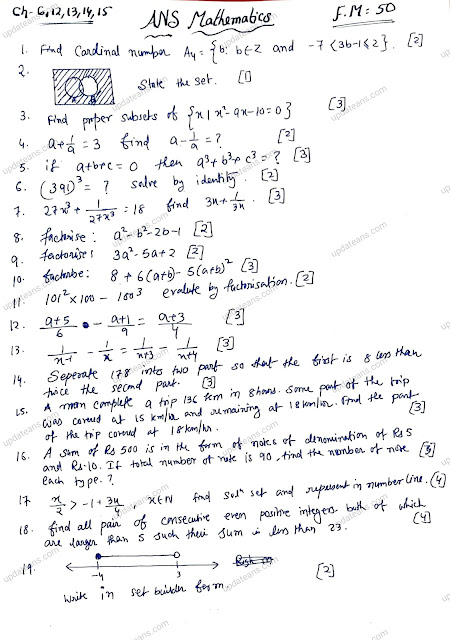 Ch- 6,12,13,14,15 ANS Mathematics F.M = 50
1. Find Cardinal number A4 = {b: b∈Z and -7 < 3b-1 ≤ 2}. [2]
2. A B State the set. [1]
3. Find proper subsets of {x | x² - 9x - 10 = 0} [3]
4. a + 1/a = 3 find a - 1/a = ? [2]
5. if a+b+c = 0 then a³ + b³ + c³ = ? [3]
6. (391)³ = ? solve by identity. [2]
7. 27x³ + 1/27x³ = 18 find 3x + 1/3x. [3]
8. factorise: a² - b² - 2b - 1 [2]
9. factorise: 3a² - 5a + 2 [2]
10. factorise: 8 + 6(a+b) - 5(a+b)² [3]
11. 101² × 100 - 100³ evalute by factorisation. [2]
12. a+5/6 - a+1/9 = a+3/4 [3]
13. 1/x-1 - 1/x = 1/x+3 - 1/x+4 [3]
14. Seperate 178 into two part so that the first is 8 less than
twice the second part. [3]
15. A man complete a trip 136 km in 8 hours. Some part of the trip
was coverd at 15 km/hr and remaining at 18 km/hr. Find the part
of the trip coverd at 18 km/hr. [3]
16. A sum of Rs 500 is in the form of notes of denomination of Rs 5
and Rs. 10. If total number of note is 90, find the number of note [3]
each type. ?
17. x/2 > -1 + 3x/4, x∈N find solⁿ set and represent in number line. [4]
18. find all pair of consecutive even positive integers both of which
are larger than 5 such their sum is less than 23. [4]
19. -4 3 [2]
Write in set builder form.
updateans.com